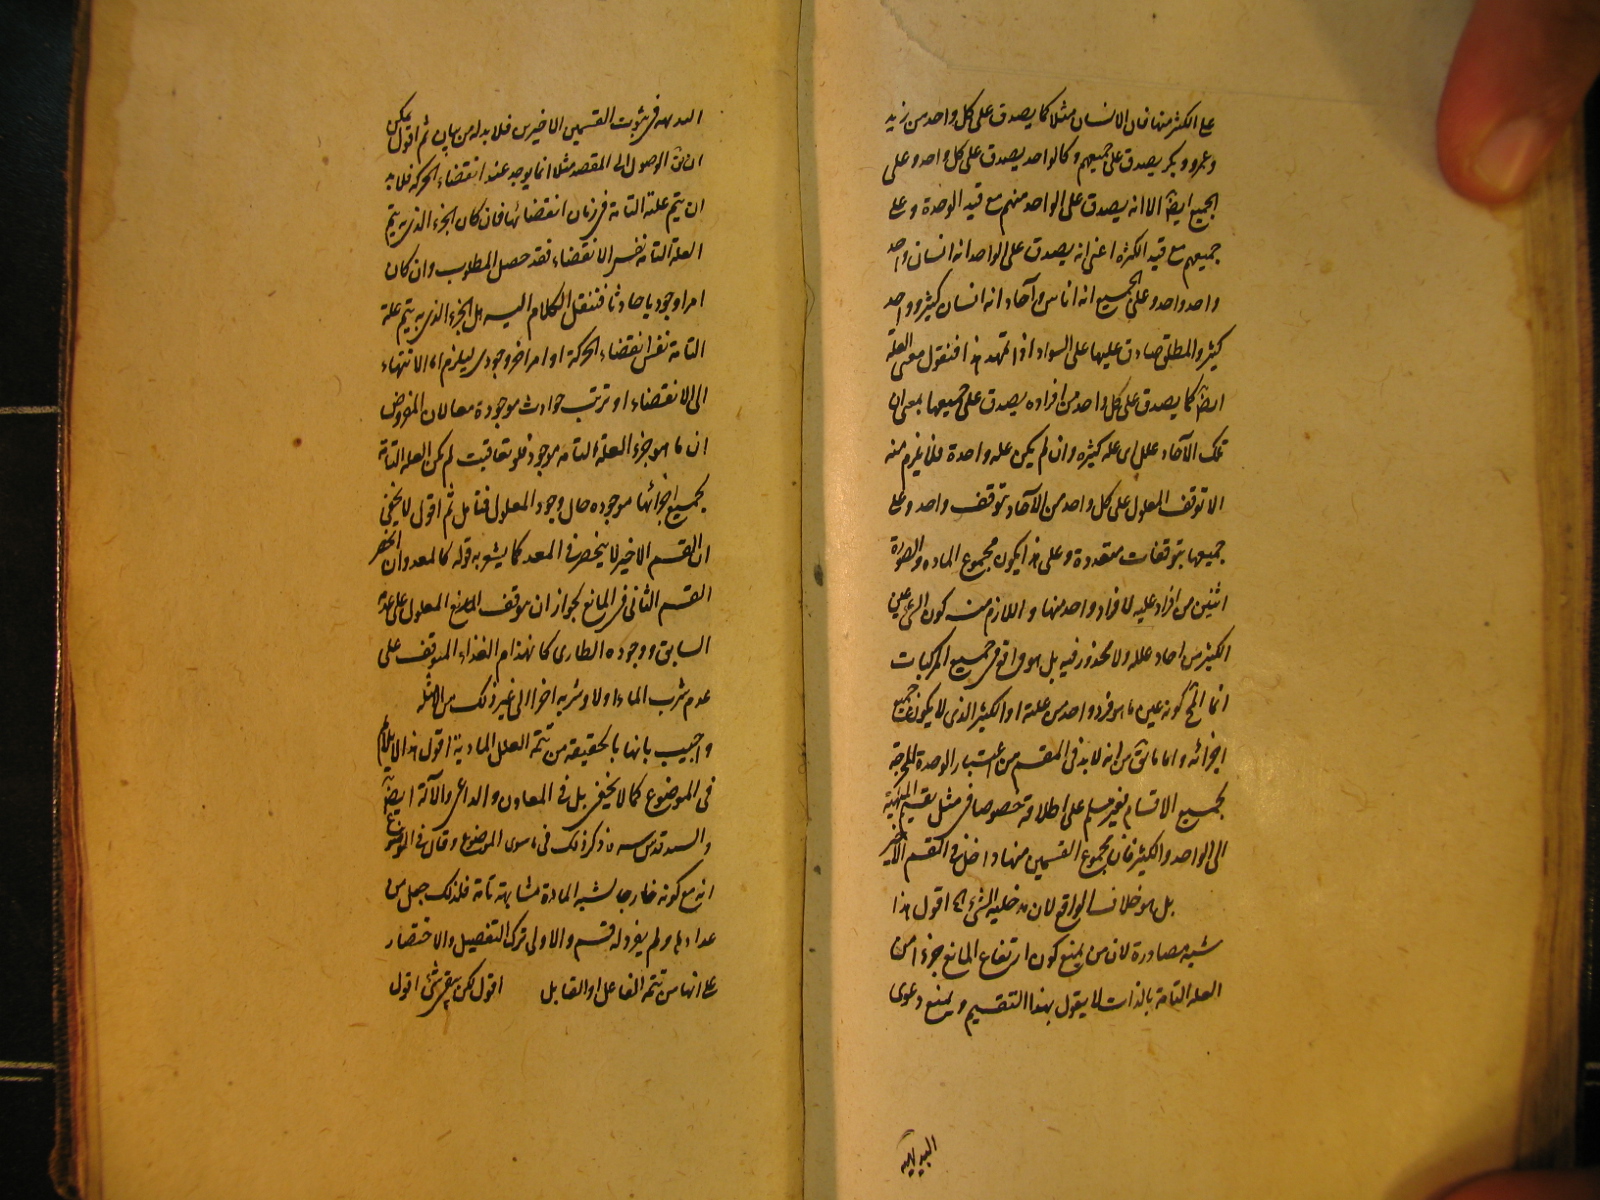 على الكثير منها فان الانسان مثلا كما يصدق على كل واحد من زيد
وعمرو وبكر يصدق على جميعهم وكالواحد يصدق على كل واحد وعلى
الجميع ايضا الا انه يصدق على الواحد منهم مع قيد الوحدة وعلى
جميعهم مع قيد الكثرة اعنى انه يصدق على الواحد انه انسان واحد
واحد واحد وعلى الجميع انه اناس وآحاد انه انسان كثير وواحد
كثير والمطلق صادق عليها على السواء اذا تمهد هذا فنقول معنى العلة
ايضا كما يصدق على كل واحد من افراده يصدق على جميعها بمعنى ان
تلك الآحاد علل اى علة كثيرة وان لم يكن علة واحدة فلا يلزم منه
الا توقف المعلول على كل واحد من الآحاد بتوقف واحد وعلى
جميعها بتوقفات متعددة وعلى هذا يكون مجموع المادة والصورة
اثنين من افراد علية لا فراد واحد منها واللازم منه كون الشئ عين
الكثير من احاد علله ولا محذور فيه بل هو واقع فى جميع المركبات
انما المح كونه عين ما هو فرد واحد من علته او الكثير الذى لا يكون جميع
اجزائه واما ما يق من انه لا بد فى المقسم من اعتبار الوحدة المخرجة
لجميع الاقسام فغير مسلم على اطلاقه خصوصا فى مثل تقسيم
الى الواحد والكثير فان مجموع القسمين منها داخل فى القسم الاخير
بل هو خلاف الواقع لان مدخلية الشئ اه اقول هذا
شبه مصادرة لان من يمنع كون ارتفاع المانع جزءا من
العلة التامة بالذات لا يقول بهذا التقسيم ويمنع دعوى
البديهية
البديهة فى ثبوت القسمين الاخيرين فلا بد له من بيان ثم اقول يمكن
ان يق الوصول الى المقصد مثلا انما يوجد عند انقضاء الحركة فلا بد
ان يتم علته التامة فى زمان انقضائها فان كان الجزء الذى به يتم
العلة التامة نفس الانقضاء فقد حصل المطلوب وان كان
امرا وجوديا حادثا فننقل الكلام اليه هل الجزء الذى به يتم علة
التامة نفس انقضاء الحركة او امر اخر وجودى فيلزم اما الانتهاء
الى الانقضاء او ترتب حوادث موجودة معا لان المفروض
ان ما هو جزء العلة التامة موجود فلو تعاقبت لم يكن العلة التامة
بجميع اجزائها موجودة حال وجود المعلول فتأمل ثم اقول لا يخفى
ان القسم الاخير لا ينحصر فى المعد كما يشعر به قوله كالمعد وان انحصر
القسم الثانى فى المانع لجواز ان يتوقف المعلول على عدمه
السابق ووجوده الطارى كانهضام الغذاء المتوقف على
عدم شرب الماء اولا وشربه اخرا الى غير ذلك من الامثلة
واجيب بانها بالحقيقة من تتمة العلل المادية اقول هذا لا يلائم
فى الموضوع كما لا يخفى بل فى المعاون والداعى والآلة ايضا
والسيد قدس سره ذكر ذلك فى ما سوى الموضوع وقال فى الموضوع
انه مع كونه خارجا لشبه المادة مشابهة تامة فلذلك جعل من
عدادها ولم يفرد له قسم والاولى ترك التفصيل والاختصار
على انها من تتمة الفاعل او القابل اقول لكن بقى شئ اقول